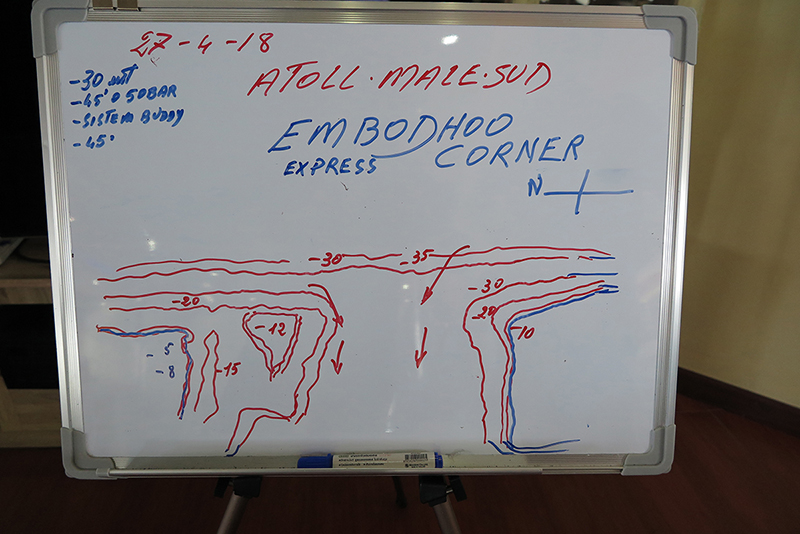 27-4-18
ATOLL·MALE·SUD
-30 mt
-45' O 50BAR
-SISTEM BUDDY
-45'
EMBODHOO
EXPRESS CORNER
N
-30 -35
-20 -30
-12 -20
-10
-5
-8 -15